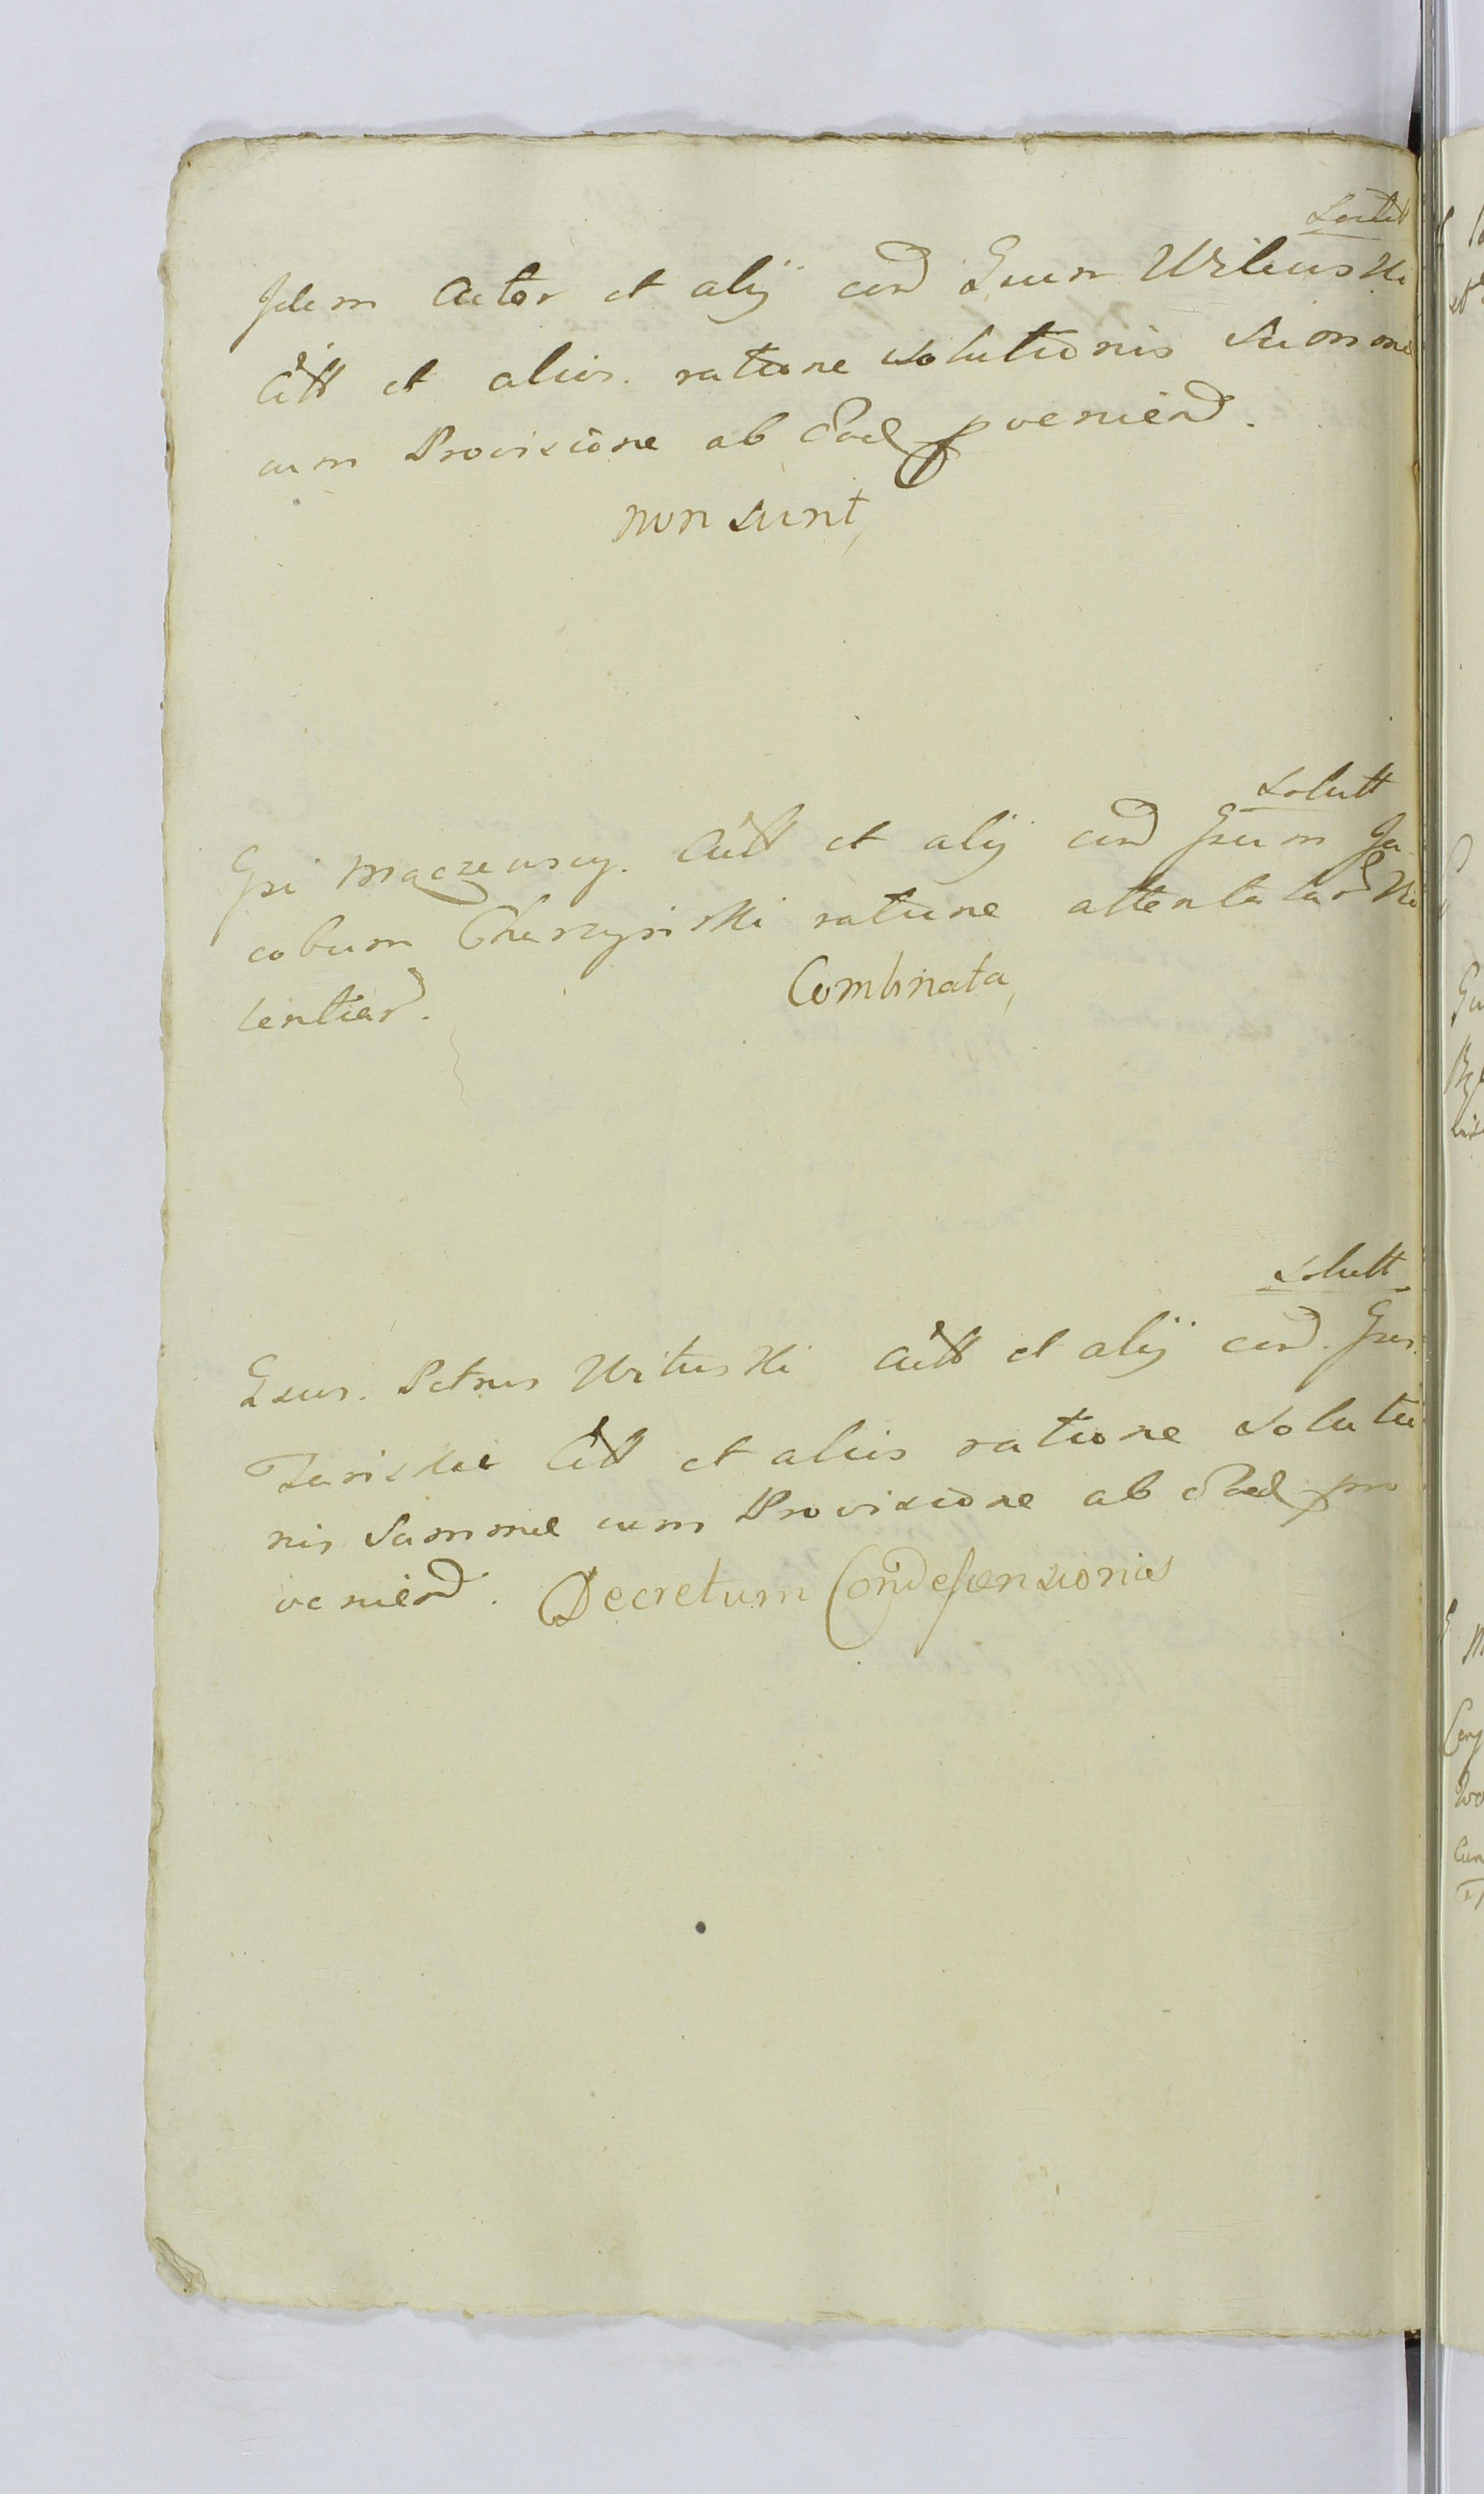 Solutt
Idem Actor et alij cond Gsum Wiluski
Citt et alios. ratione solutionis summe
cum Provisione ab Ead pveniend.
non sunt,
Solutt
Gsi Maczewscy. Actt et alij cond Gsum Ja
cobum ratione attentatar
tentiar.
Combinata,
Solutt
Gsus. Petrus Wituski Actt et alij cond. Gsos.
Citt et alios ratione solutio
nis Summe cum Provisione ab Ead pro
veniend. Decretum Condescensionis